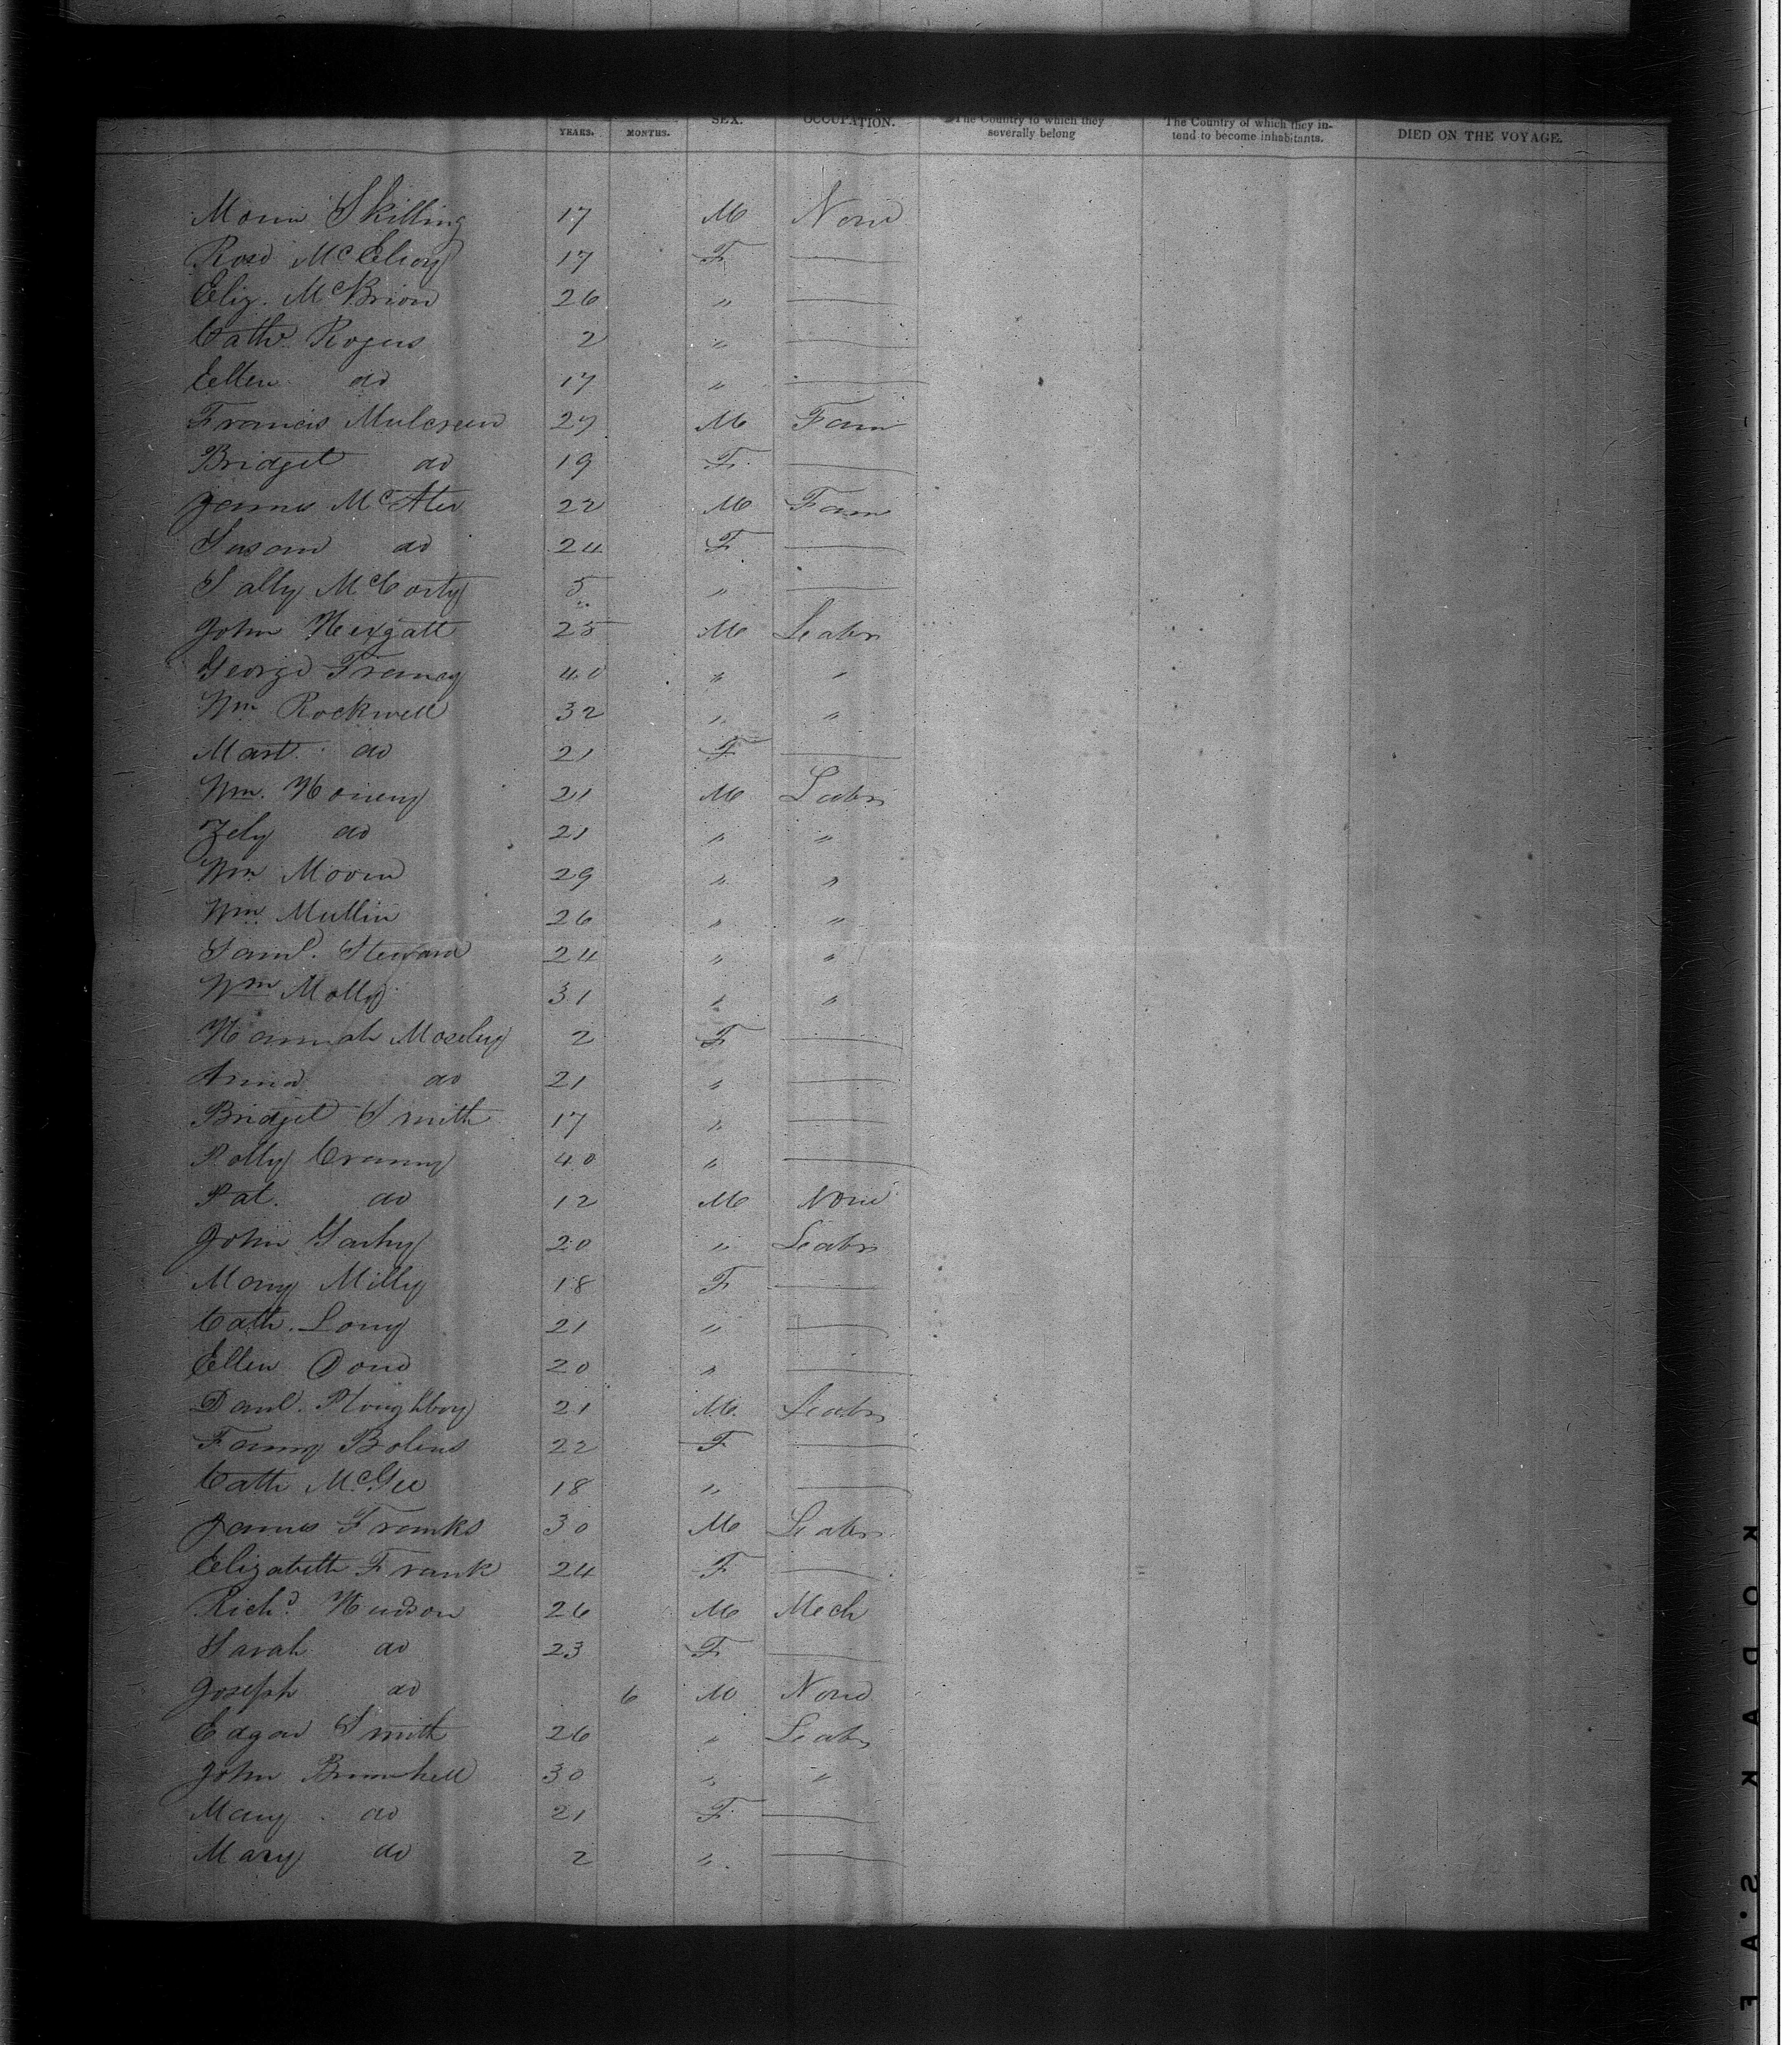 YEARS. MONTHS. SEX. OCCUPATION. The Country to which they severally belong The Country of which they intend to become inhabitants. DIED ON THE VOYAGE.
Skilling 17 M None
Rose McElroy 17 F
Eliz. McBrion 26 "
Cath Rogers 2 "
Ellen do 17 "
Francis Mulcreen 27 M Farm
Bridget do 19 F
James McAter 22 M Farm
Susan do 24 F
Sally McCarty 5 "
John Hexgatt 25 M Labr
George Franey 40 " "
Wm Rockwell 32 " "
Mart. do 21 F
Wm. 21 M Labr
do 21 " "
Wm 29 " "
Wm. Mullin 26 " "
Saml. Steward 24 " "
Wm Molloy 31 " "
Hannah Moseley 2 F
Anna do 21 "
Bridget Smith 17 "
Polly Cranny 40 "
Pat. do 12 M None
John 20 " Labr
Mary Milly 18 F
Cath. Long 21 "
Ellen 20 "
Danl. Ploughboy 21 M Labr
Fanny Bolins 22 F
Cath McGee 18 "
James Franks 30 M Labr
Elizabeth Frank 24 F
Richd. Hudson 26 M Mech
Sarah do 23 F
Joseph do 6 M None
Edgar Smith 26 " Labr
John Brumhell 30 " "
Mary do 21 F
Mary do 2 "
KODAK S.'A F